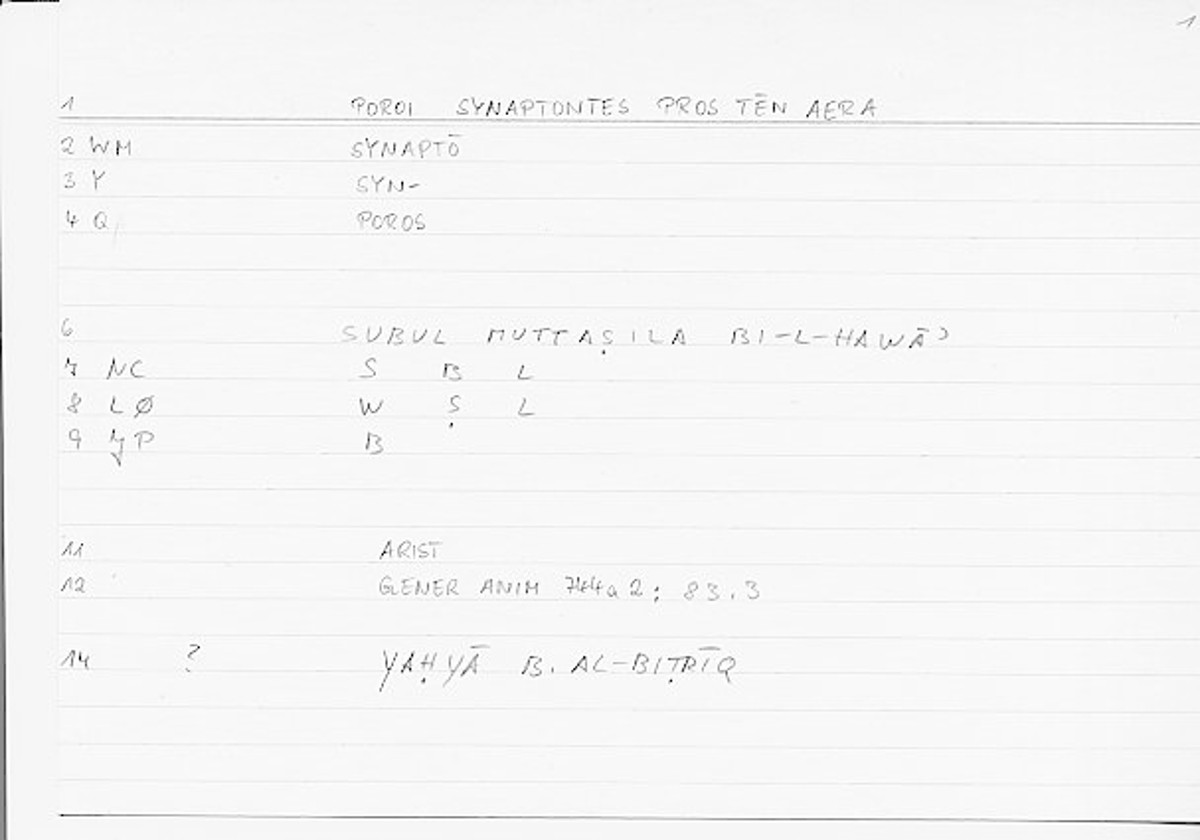 1
1 POROI SYNAPTONTES PROS TĒN AERA
2 WM SYNAPTŌ
3 Y SYN-
4 Q POROS
6 SUBUL MUTTAṢILA BI-L-HAWĀʾ
7 NC S B L
8 LØ W Ṣ L
9 JP B
11 ARIST
12 GENER ANIM 744a2; 83.3
14 ? YAḤYĀ B. AL-BIṬRĪQ